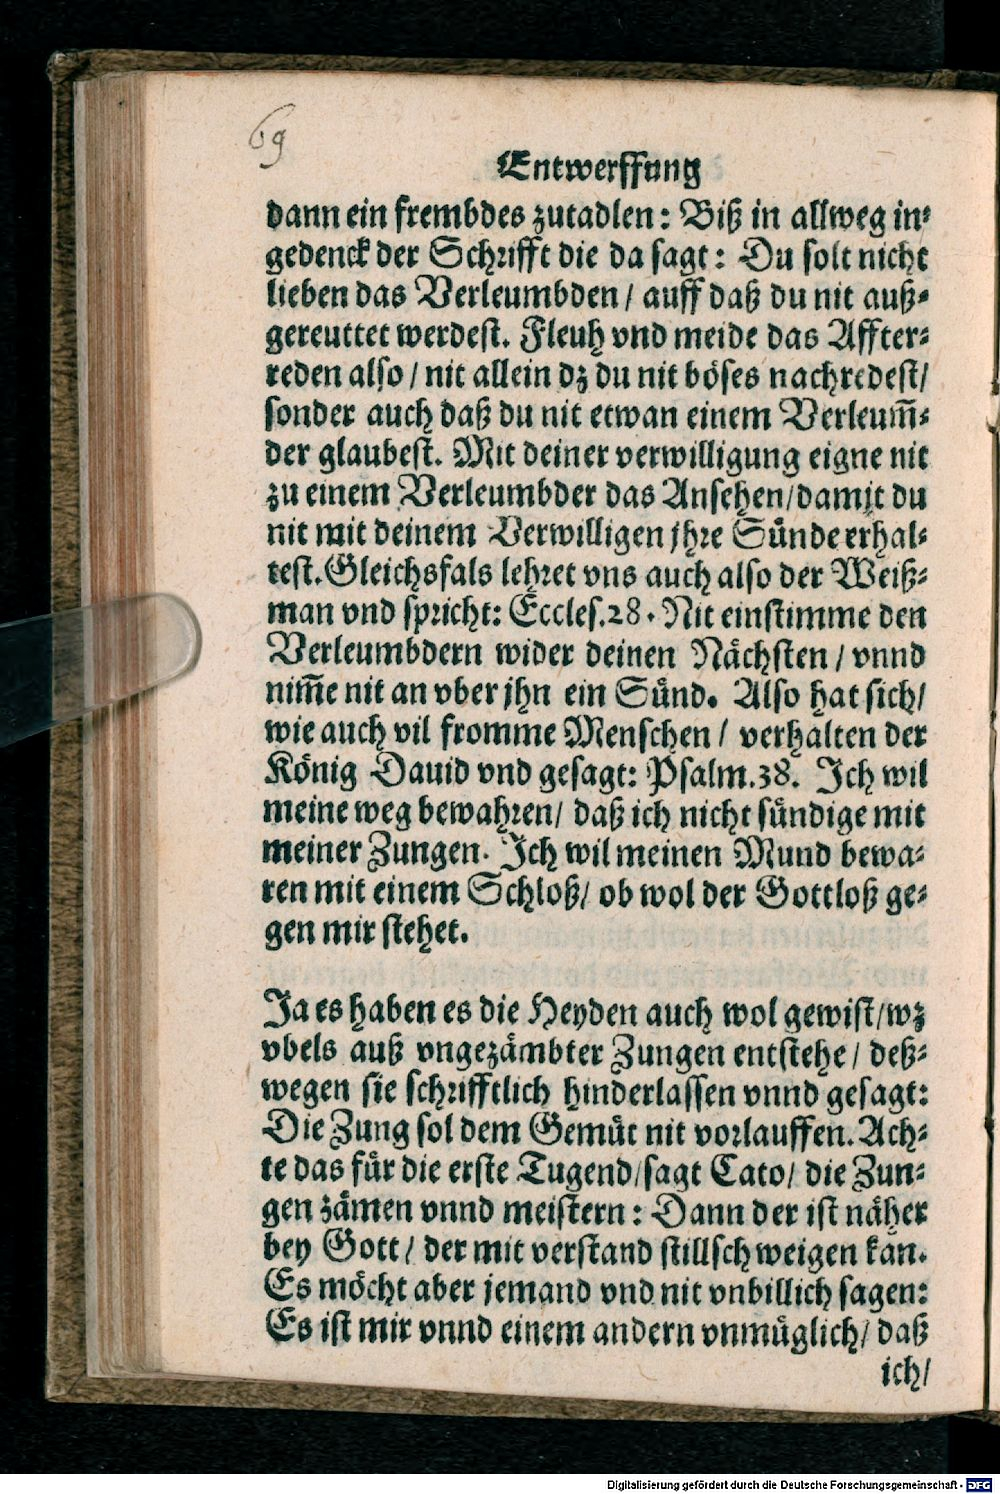 69
Entwerffung
dann ein frembdes zutadlen: Biß in allweg in⸗
gedenck der Schrifft die da sagt: Du solt nicht
lieben das Verleumbden / auff daß du nit auß⸗
gereuttet werdest. Fleuh vnd meide das Affter⸗
reden also / nit allein dz du nit böses nachredest/
sonder auch daß du nit etwan einem Verleum̃⸗
der glaubest. Mit deiner verwilligung eigne nit
zu einem Verleumbder das Ansehen/damit du
nit mit deinem Verwilligen jhre Sünde erhal⸗
test. Gleichsfals lehret vns auch also der Weiß⸗
man vnd spricht: Eccles.28. Nit einstimme den
Verleumbdern wider deinen Nächsten / vnnd
nim̃e nit an vber jhn ein Sünd. Also hat sich/
wie auch vil fromme Menschen / verhalten der
König Dauid vnd gesagt: Psalm.38. Ich wil
meine weg bewahren/ daß ich nicht sündige mit
meiner Zungen. Ich wil meinen Mund bewa⸗
ren mit einem Schloß/ ob wol der Gottloß ge⸗
gen mir stehet.
Ja es haben es die Heyden auch wol gewist/wz
vbels auß vngezämbter Zungen entstehe / deß⸗
wegen sie schrifftlich hinderlassen vnnd gesagt:
Die Zung sol dem Gemüt nit vorlauffen. Ach⸗
te das für die erste Tugend/sagt Cato/ die Zun⸗
gen zämen vnnd meistern: Dann der ist näher
bey Gott / der mit verstand stillschweigen kan.
Es möcht aber jemand vnd nit vnbillich sagen:
Es ist mir vnnd einem andern vnmüglich/ daß
ich/
Digitalisierung gefördert durch die Deutsche Forschungsgemeinschaft - DFG